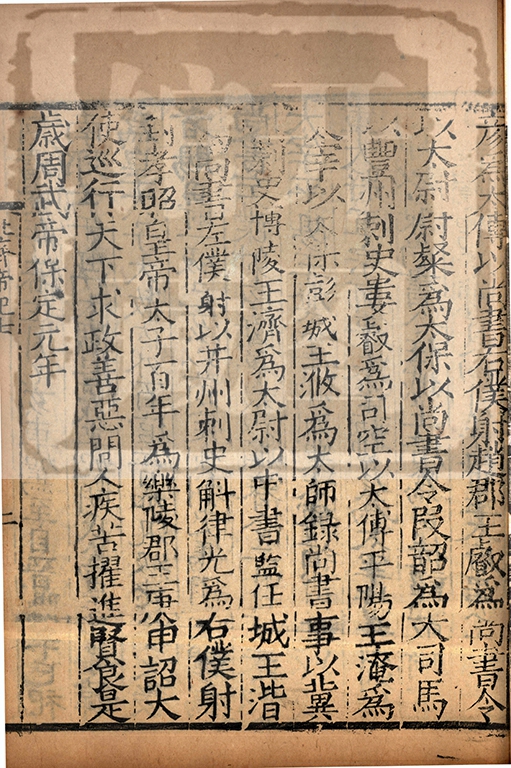 彥為太傅以尚書右僕射趙郡王叡為尚書令
以太尉尉粲為太保以尚書令段韶為大司馬
以豐州刺史婁叡為司空以太傅平陽王淹為
太宰以太保彭城王浟為太師錄尚書事以冀
州刺史博陵王濟為太尉以中書監任城王湝
為尚書左僕射以并州刺史斛律光為右僕射
封孝昭皇帝太子百年為樂陵郡王庚申詔大
使巡行天下求政善惡問人疾苦擢進賢良是
歲周武帝保定元年
北齊帝紀七